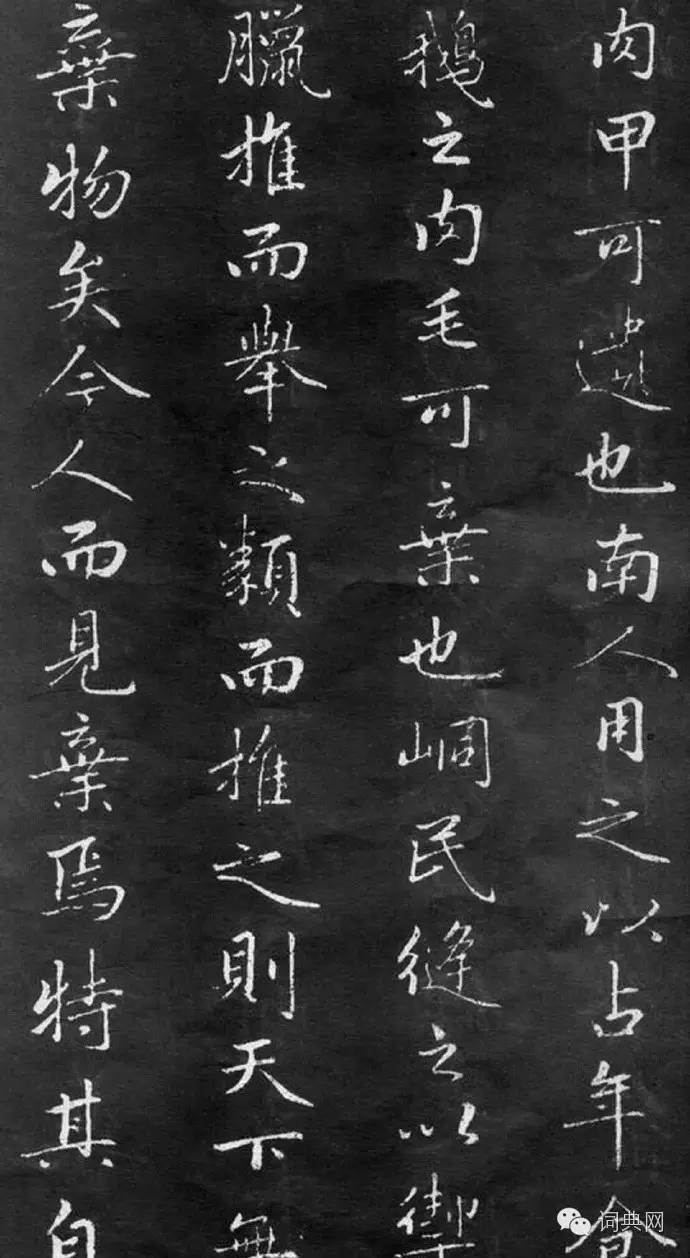 肉甲可遺也南人用之以占年食
鵝之肉毛可棄也峒民縫之以禦
臘推而舉之類而推之則天下無
棄物矣今人而見棄焉特其自
词典网